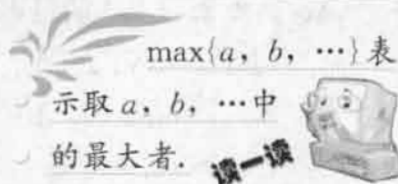 max{a, b, …}表
示取 a, b, …中
的最大者.
读一读